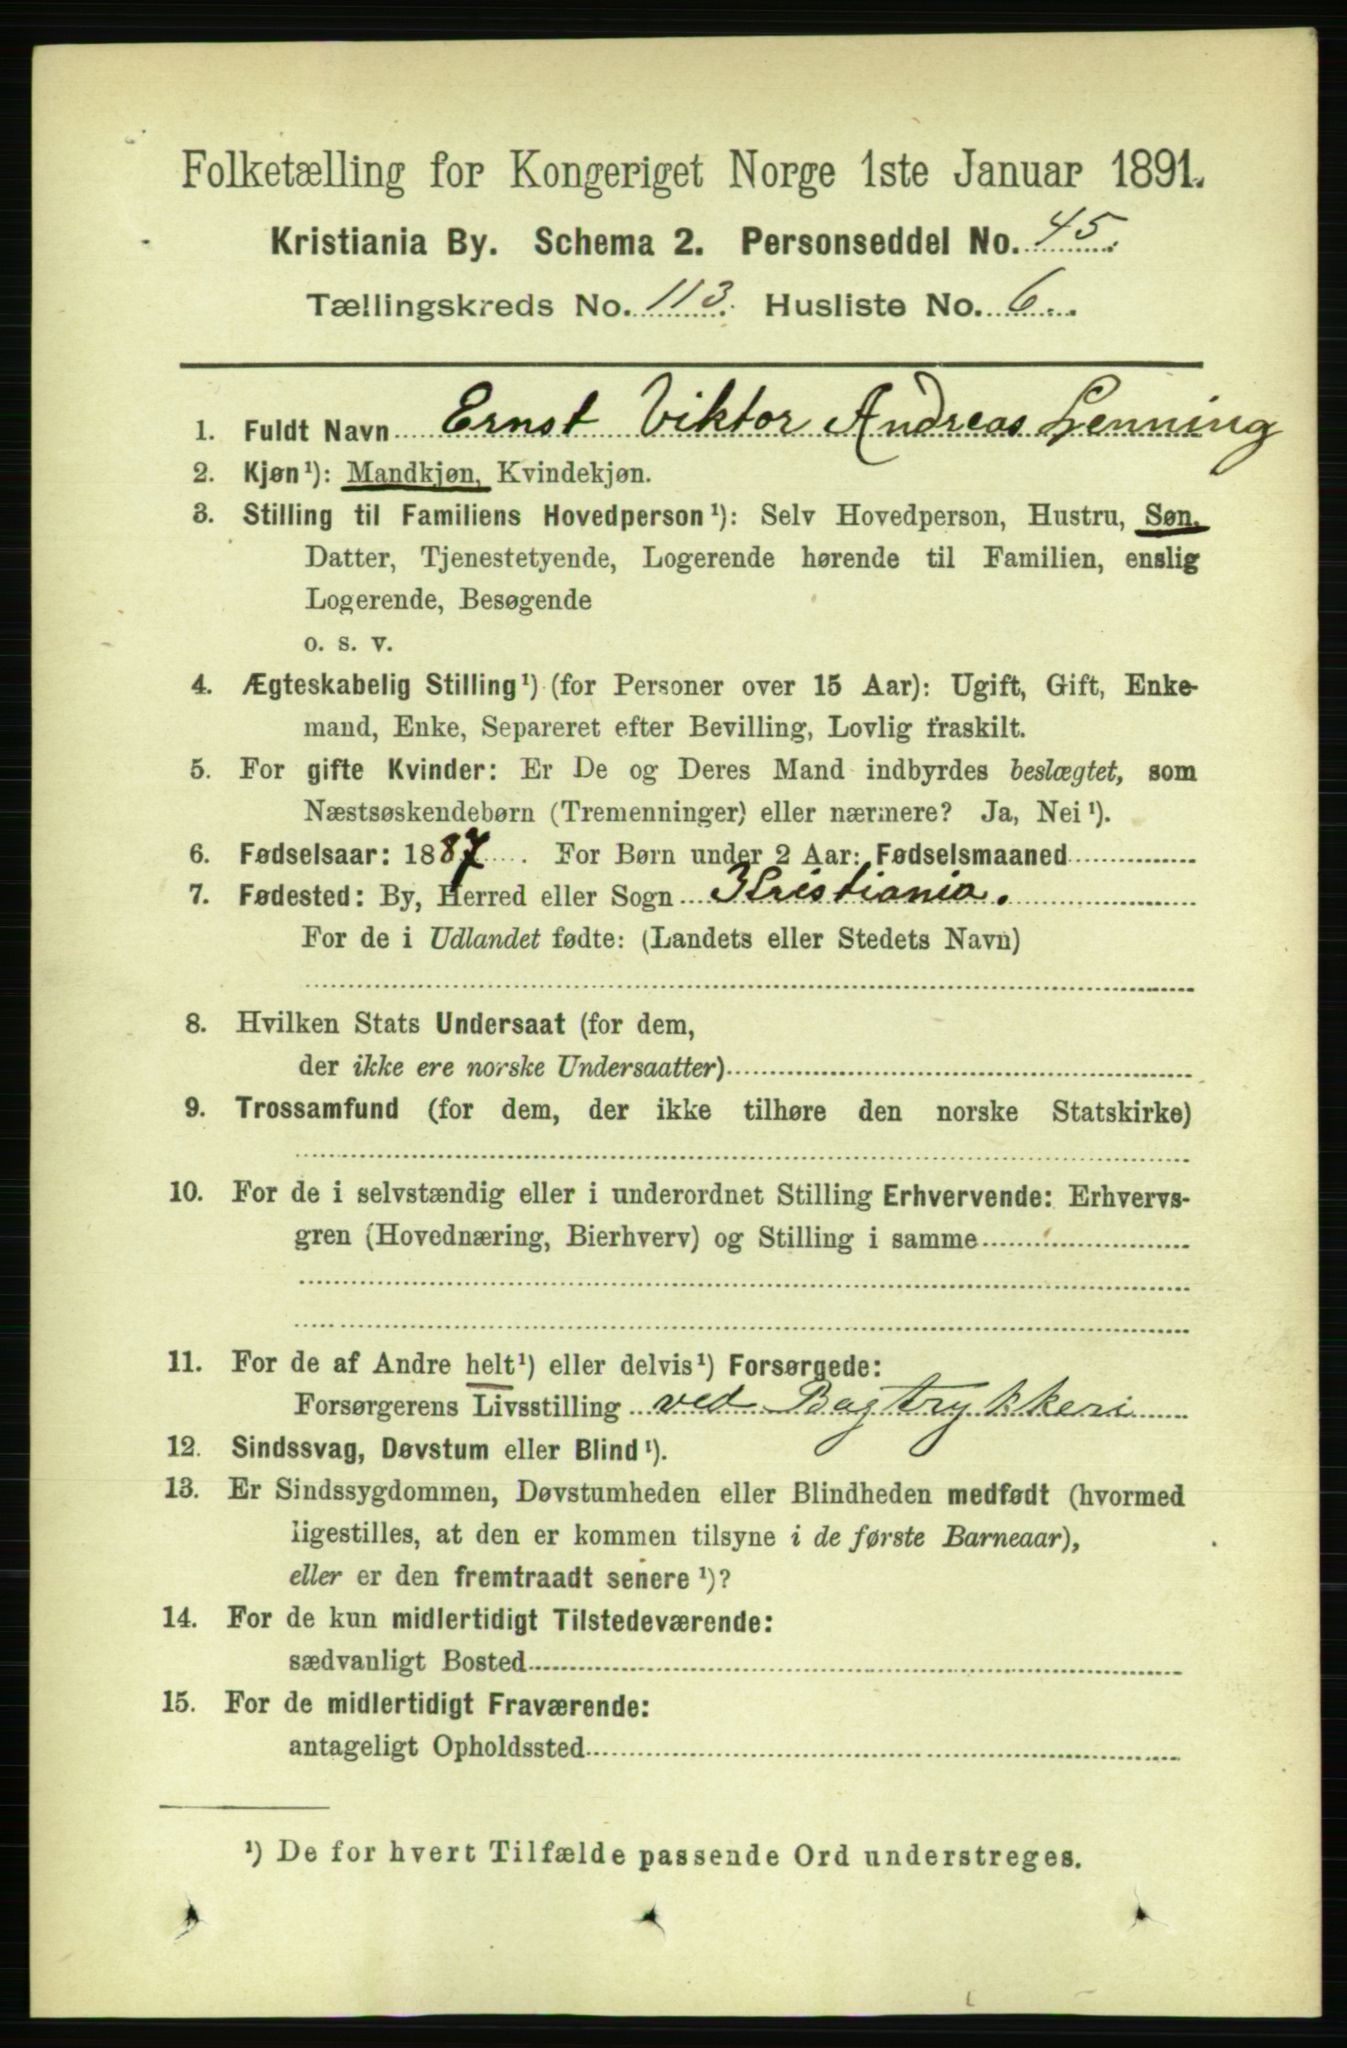 Folketælling for Kongeriget Norge 1ste Januar 1891.
Kristiania By. Schema 2. Personseddel No. 45.
Tællingskreds No. 113. Husliste No. 6.
1. Fuldt Navn Ernst Viktor Andreas Lenning
2. Kjøn¹): Mandkjøn, Kvindekjøn.
3. Stilling til Familiens Hovedperson¹): Selv Hovedperson, Hustru, Søn,
Datter, Tjenestetyende, Logerende hørende til Familien, enslig
Logerende, Besøgende
o. s. v.
4. Ægteskabelig Stilling¹) (for Personer over 15 Aar): Ugift, Gift, Enke-
mand, Enke, Separeret efter Bevilling, Lovlig fraskilt.
5. For gifte Kvinder: Er De og Deres Mand indbyrdes beslægtet, som
Næstsøskendebørn (Tremenninger) eller nærmere? Ja, Nei¹).
6. Fødselsaar: 1887. For Børn under 2 Aar: Fødselsmaaned
7. Fødested: By, Herred eller Sogn Kristiania.
For de i Udlandet fødte: (Landets eller Stedets Navn)
8. Hvilken Stats Undersaat (for dem,
der ikke ere norske Undersaatter)
9. Trossamfund (for dem, der ikke tilhøre den norske Statskirke)
10. For de i selvstændig eller i underordnet Stilling Erhvervende: Erhvervs-
gren (Hovednæring, Bierhverv) og Stilling i samme
11. For de af Andre helt¹) eller delvis¹) Forsørgede:
Forsørgerens Livsstilling ved Bogtrykkeri
12. Sindssvag, Døvstum eller Blind¹).
13. Er Sindssygdommen, Døvstumheden eller Blindheden medfødt (hvormed
ligestilles, at den er kommen tilsyne i de første Barneaar),
eller er den fremtraadt senere¹)?
14. For de kun midlertidigt Tilstedeværende:
sædvanligt Bosted
15. For de midlertidigt Fraværende:
antageligt Opholdssted
¹) De for hvert Tilfælde passende Ord understreges.